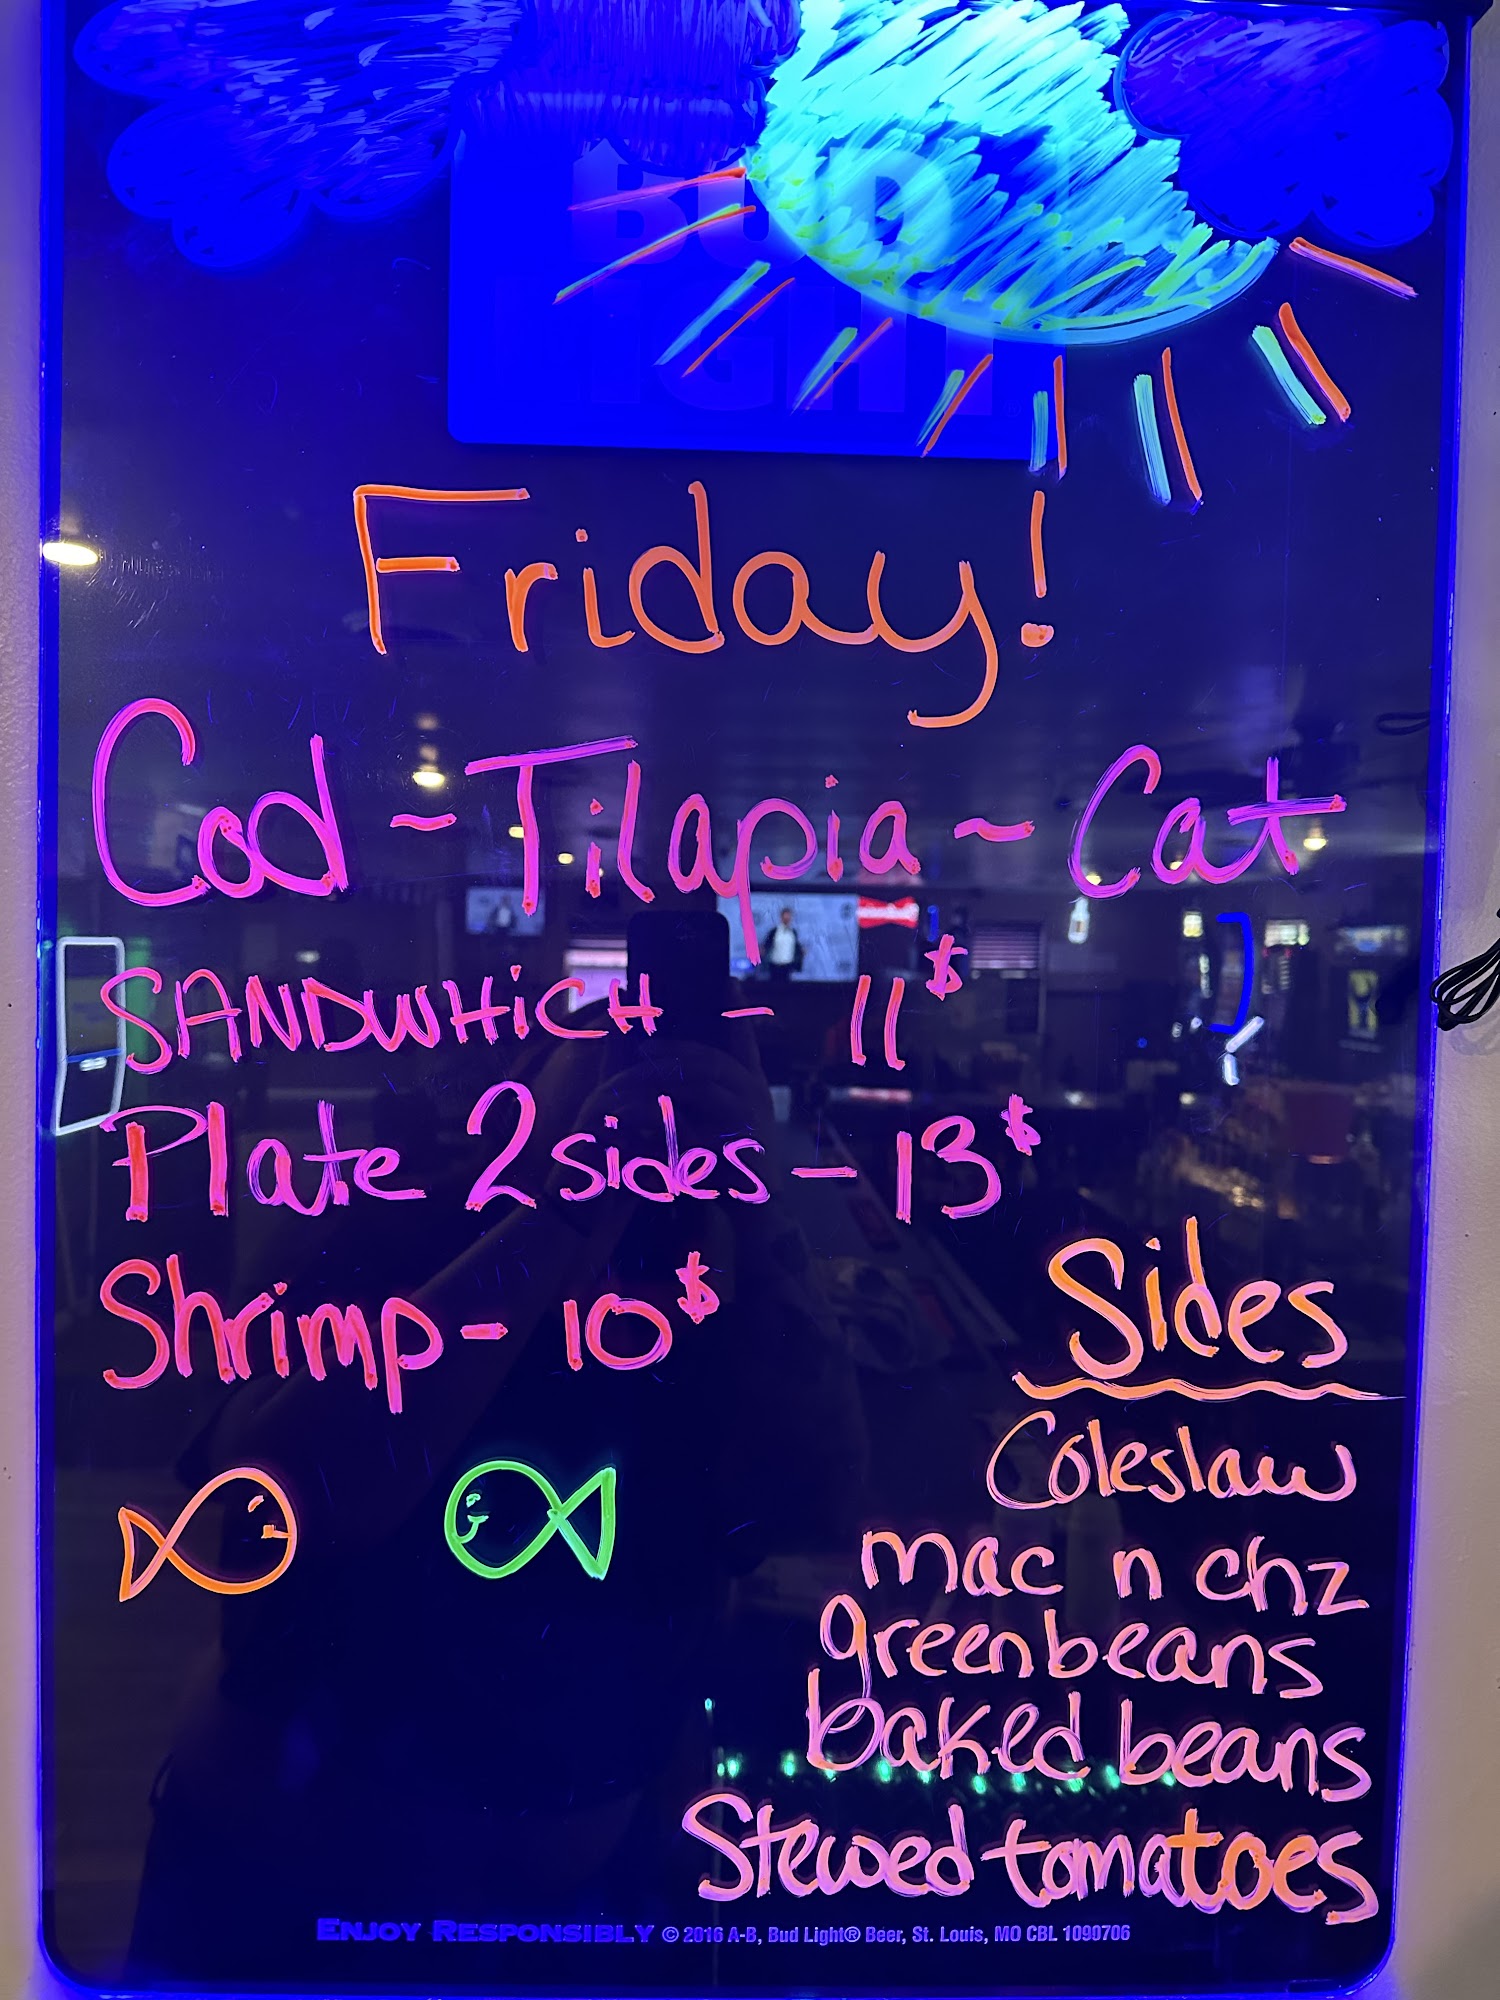 BUD
LIGHT
Friday!
Cod ~ Tilapia ~ Cat
SANDWHiCH - 11$
Plate 2 sides - 13$
Shrimp - 10$
Sides
Coleslaw
mac n chz
greenbeans
baked beans
Stewed tomatoes
ENJOY RESPONSIBLY © 2016 A-B, Bud Light® Beer, St. Louis, MO CBL 1090706